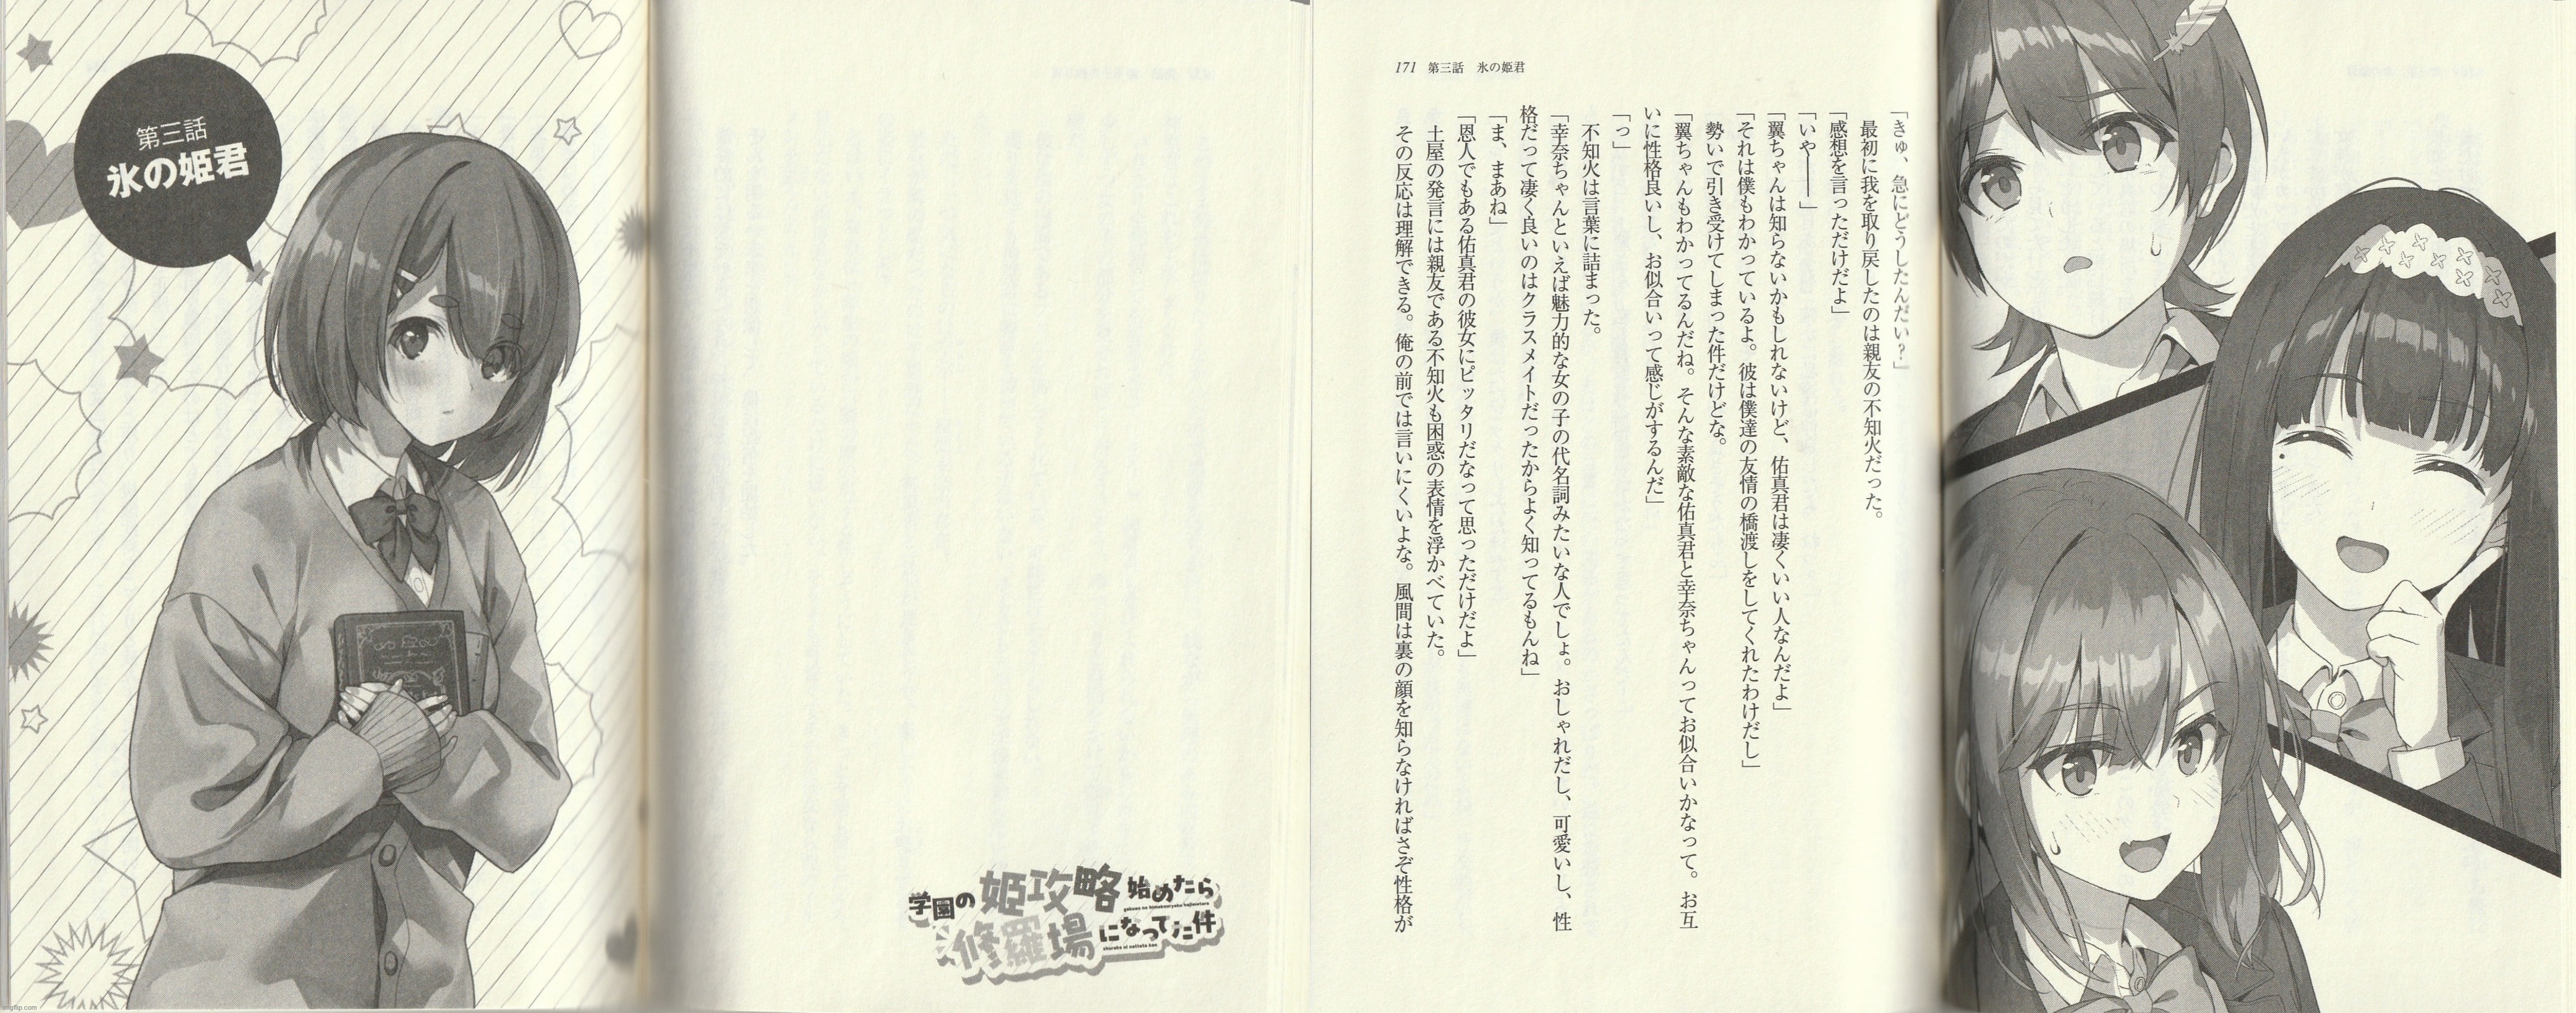 171 第三話 氷の姫君
「きゅ、急にどうしたんだい？」
最初に我を取り戻したのは親友の不知火だった。
「感想を言っただけだよ」
「いや――」
「翼ちゃんは知らないかもしれないけど、佑真君は凄くいい人なんだよ」
「それは僕もわかっているよ。彼は僕達の友情の橋渡しをしてくれたわけだし」
勢いで引き受けてしまった件だけどな。
「翼ちゃんもわかってるんだね。そんな素敵な佑真君と幸奈ちゃんってお似合いかなって。お互
いに性格良いし、お似合いって感じがするんだ」
「っ」
不知火は言葉に詰まった。
「幸奈ちゃんといえば魅力的な女の子の代名詞みたいな人でしょ。おしゃれだし、可愛いし、性
格だって凄く良いのはクラスメイトだったからよく知ってるもんね」
「ま、まあね」
「恩人でもある佑真君の彼女にピッタリだなって思っただけだよ」
土屋の発言には親友である不知火も困惑の表情を浮かべていた。
その反応は理解できる。俺の前では言いにくいよな。風間は裏の顔を知らなければさぞ性格が
学園の姫攻略始めたら
gakuen no himekouryaku hajimetara
修羅場になってた件
shuraba ni natteta ken
第三話
氷の姫君
imgflip.com